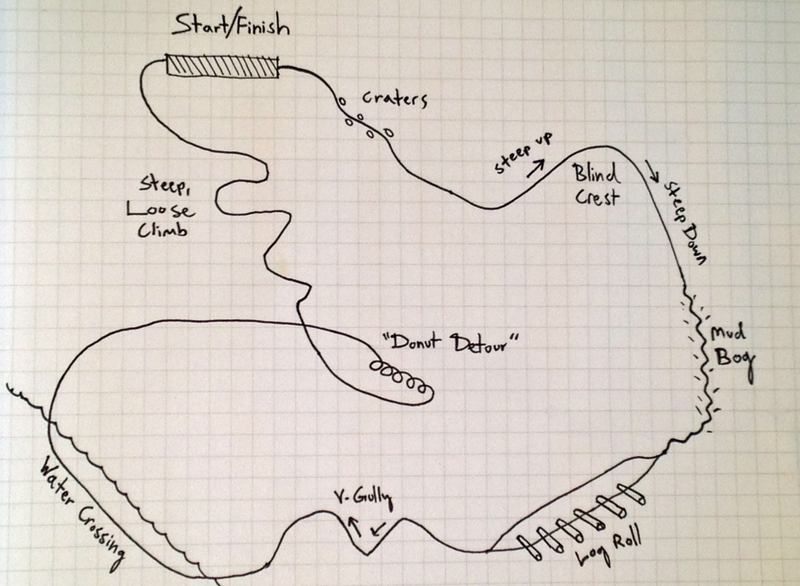 Start/Finish
craters
Steep up
Blind
Crest
Steep Down
Steep,
Loose
Climb
"Donut Detour"
Mud
Bog
V-Gully
Water Crossing
Log Roll